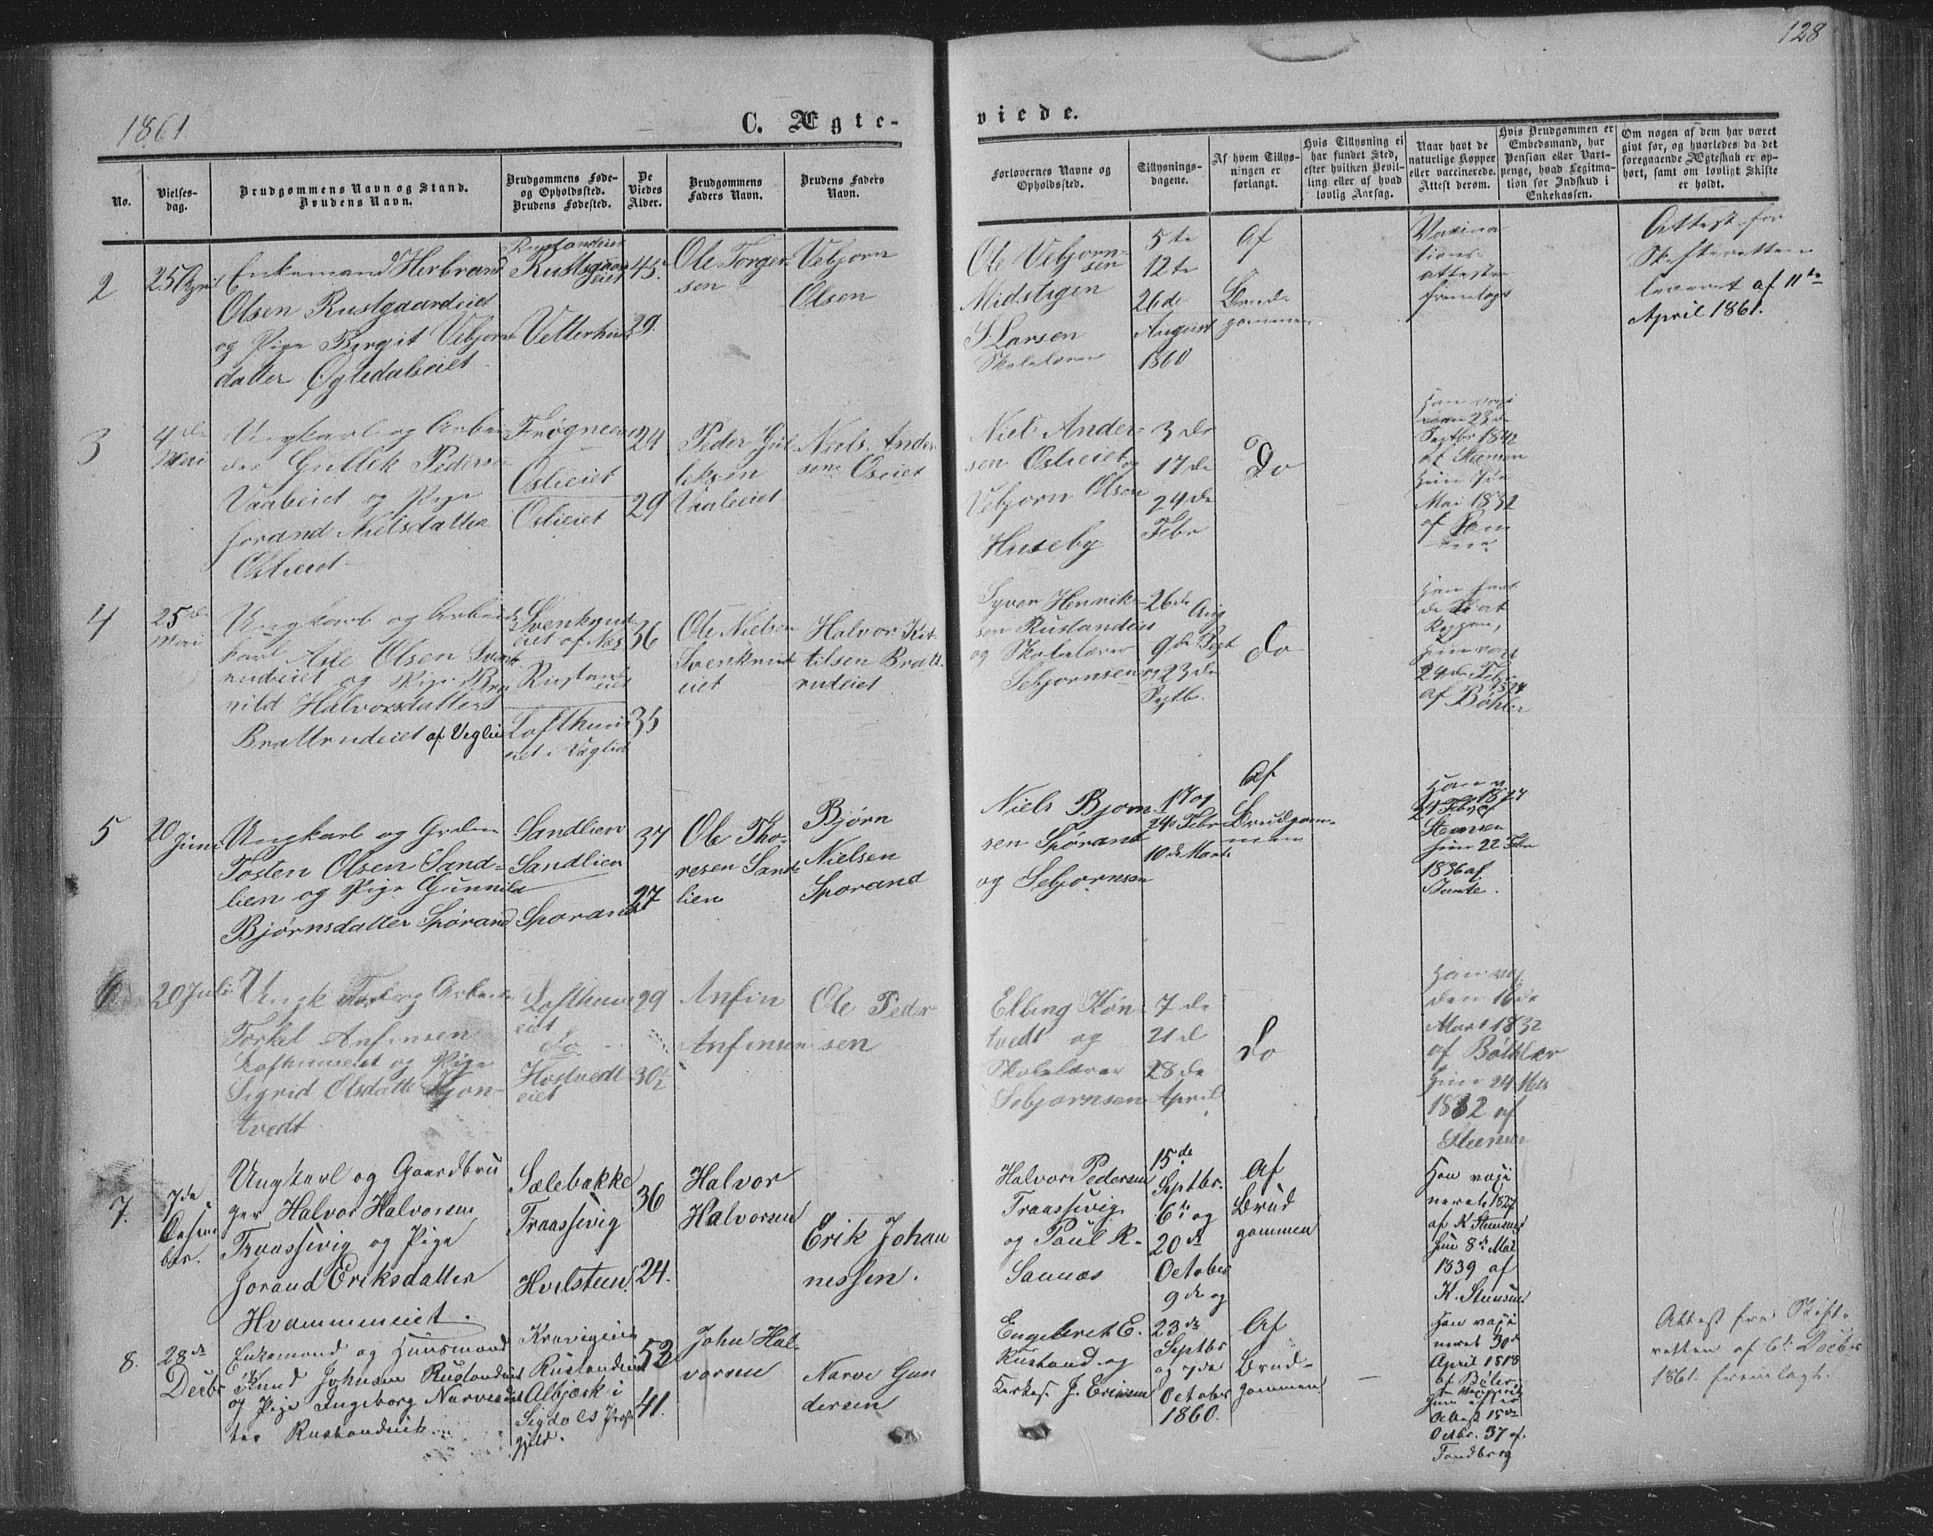 128
1861
C. Ægte-
viede.
No.
Vielses-
dag.
Brudgommens Navn og Stand.
Brudens Navn.
Brudgommens Føde-
og Opholdssted.
Brudens Fødested.
De
Viedes
Alder.
Brudgommens
Faders Navn.
Brudens Faders
Navn.
Forlovernes Navne og
Opholdssted.
Tillysnings-
dagene.
Af hvem Tillys-
ningen er
forlangt.
Hvis Tillysning ei
har fundet Sted,
efter hvilken Bevil-
ling eller af hvad
lovlig Aarsag.
Naar havt de
naturlige Kopper
eller vaccinerede.
Attest derom.
Hvis Brudgommen er
Embedsmand, hur
Pension eller Vart-
penge, hvad Legitima-
tion for Indskud i
Enkekassen.
Om nogen af dem har været
gift før, og hvorledes da det
foregaaende Ægteskab er op-
hørt, samt om lovligt Skifte
er holdt.
2
25 April
Enkemand Herbrand
Olsen Rustgaardeiet
og Pige Bergit Vebjørns
datter Øgledaleiet
Rustandeiet
Rustgaard
eiet
Vetterhus
45
29.
Ole Torger
sen
Vebjørn
Olsen
Ole Vebjørn-
sen
Midstigen
S. Larsen
Skolelærer
5te
12te
26de
August
1860
Af
Brud-
gommen
Vaxina
tions-
attester
fremlagt
Attest for
Skifteretten
leveret af 11te
April 1861.
3
4de
Mai
Ungkarl og Arbei
der Gullek Pedersen
Vaaleiet og Pige
Jorand Nielsdatter
Oslieiet
Oslieiet
Oslieiet
24
29
Peder Gul
leksen
Vaaleiet
Niels Ander
sen Oslieiet
Niels Ander-
sen Oslieiet og
Vebjørn Olsen
Huseby
3de
17de
24de
Febr
Do
Han vaxi
den 23de
Septbr 1842
af Steensen
Hun 7de
Mai 1832
af
4
25de
Mai
Ungkarl og Arbeids
karl Asle Olsen Svenk
rudeiet og Pige
nild Halvorsdatter
Brattrudeiet af Veglie
Svenkrud
eiet af Næs
Rustand
eiet
Lofthuus
eiet i Veglie
36
35
Ole Nielsen
Svenkrud
eiet
Halvor Kit
tilsen Bratt
rudeiet
Syver Henrik-
sen Rustandeiet
og Skolelærer
Sebjørnsen
26de Aug
9de Sept
23de
Septb.
do
Han havt
Koppen,
Hun vaxi
24de Febr
af Bøhler
5
20 Juni
Ungkarl og Grdm
Tosten Olsen Sand-
lien og Pige Gunnild
Bjørnsdatter Spørand
Sandlien
Sandlien
Sporand
37
27
Ole Tho-
resen Sand
lien
Bjørn
Nielsen
Sporand
Niels Bjørn-
sen Spørand
og Sebjørnsen
17 og
24 Febr
10de Marts
Af
Brudgom-
men
Han v
24 Febr af
Steensen
Hun 22 Febr
1836 af
6
20 Juli
Ungk og Arbei
Torkel Anfinsen
Lofthuuseiet og Pige
Sigrid Olsdatter Kjøn-
tvedt
Lofthuus
eiet
do
Hostvedt-
eiet
29
30½
Anfin
Anfinsen
Ole Peder
sen
Elling Køn-
tvedt og
Skolelærer
Sebjørnsen
7de
21de
28de
April
do
Han vax
den 16de
Mars 1832
af Bøthler
Hun 24 Mai
1832 af
Steensen
7.
7de
Decem
ber.
Ungkarl og Gaardbru
ger Halvor Halvorsen
Traassevig og Pige
Jorand Eriksdatter
Hvammeneiet.
Sælebakke
Traassevig
Hvilsteen
36
24.
Halvor
Halvorsen
Erik Johan
nessen.
Halvor Pedersen
Traassevig
og Paul R.
Sannæs
15de
Septbr.
6te og
20de
October
Af
Brud
gommen
Han vaxi
neret 1827
af K. Steensen
Hun 8de Mai
1839 af
K. Steensen
8.
28de
Decbr
Enkemand og Huusmand
Knud Johnsen Rustandeiet
og Pige Ingeborg Narvesdat
ter Rustandeiet.
Kravigeiet
Rustandeiet
Albjærk i
Sigdals Præste
gjeld.
53
41.
John Hal-
vorsen
Narve Gun
dersen
Engebret E.
Rustand og
Kirkes. J. Eriksen
9de og
23de
Septbr
og 7de
October
1860.
Af
Brud-
gommen
Han vaxi
neret 30de
April 1818
Hun efter
Attest 15de
Octbr. 37 af
Tandberg
Attest fra Skifte
retten af 6te Decbr
1861 fremlagt.